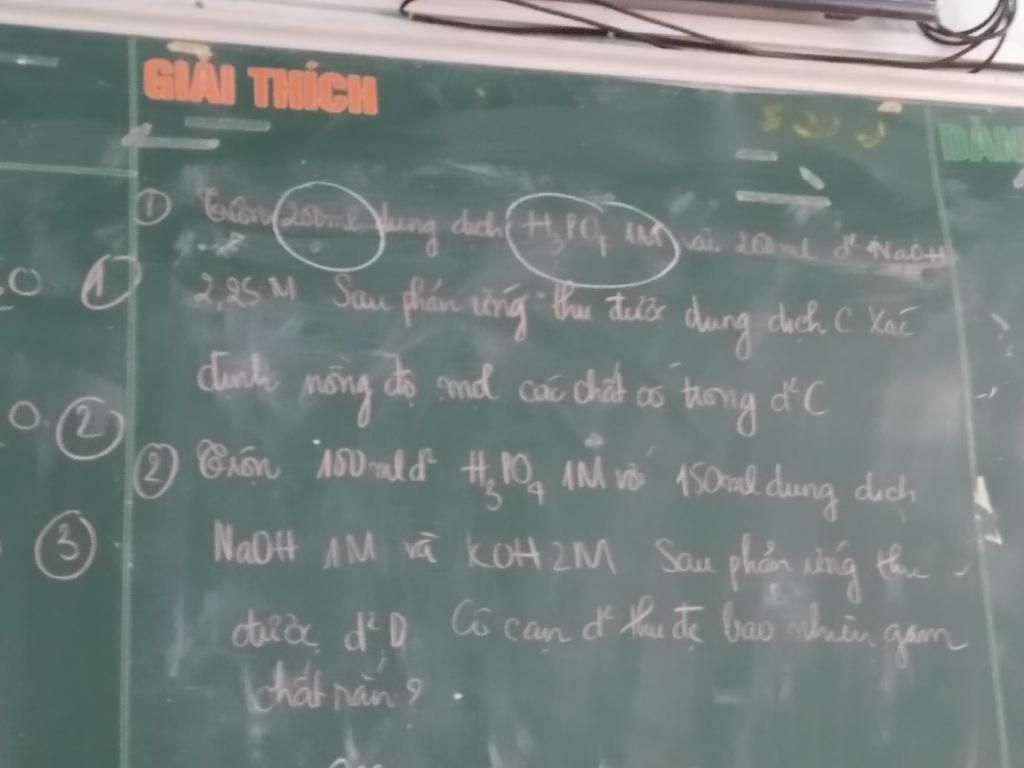 GIẢI THÍCH
① Trộn 200ml dung dịch H₃PO₄ 1M với 200ml d² NaOH
2,25M Sau phản ứng thu được dung dịch C Xác
định nồng độ mol các chất có trong d² C
② Trộn 100ml d² H₃PO₄ 1M với 150ml dung dịch
NaOH 1M và KOH 2M Sau phản ứng thu
được d² D Cô cạn d² thu đc bao nhiêu gam
chất rắn?
O ①
O. ②
③